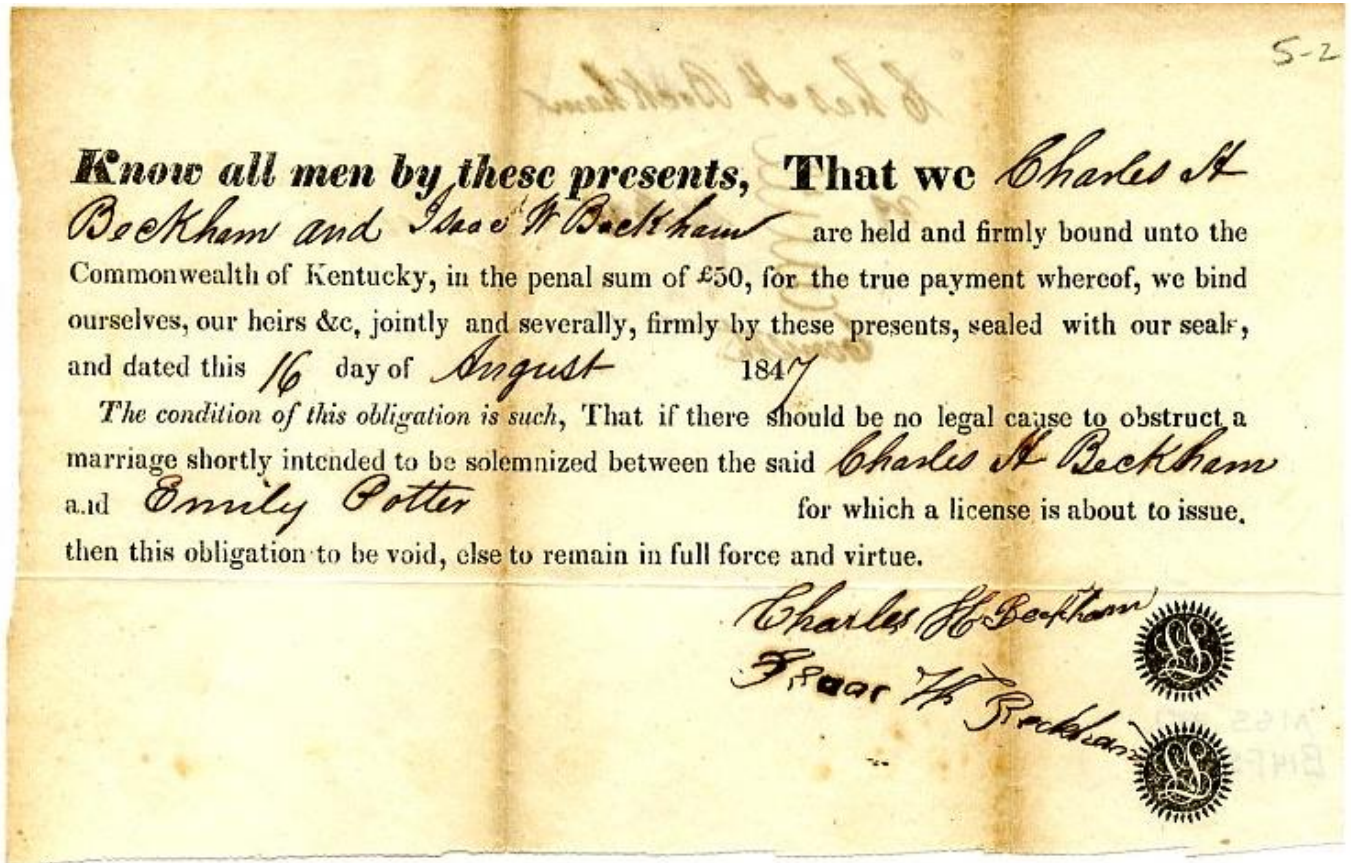 5-2
Know all men by these presents, That we Charles H
Beckham and Isaac W Beckham are held and firmly bound unto the
Commonwealth of Kentucky, in the penal sum of £50, for the true payment whereof, we bind
ourselves, our heirs &c, jointly and severally, firmly by these presents, sealed with our seals,
and dated this 16 day of August 1847
The condition of this obligation is such, That if there should be no legal cause to obstruct a
marriage shortly intended to be solemnized between the said Charles H Beckham
and Emily Potter for which a license is about to issue,
then this obligation to be void, else to remain in full force and virtue.
Charles H Beckham
Isaac W Beckham